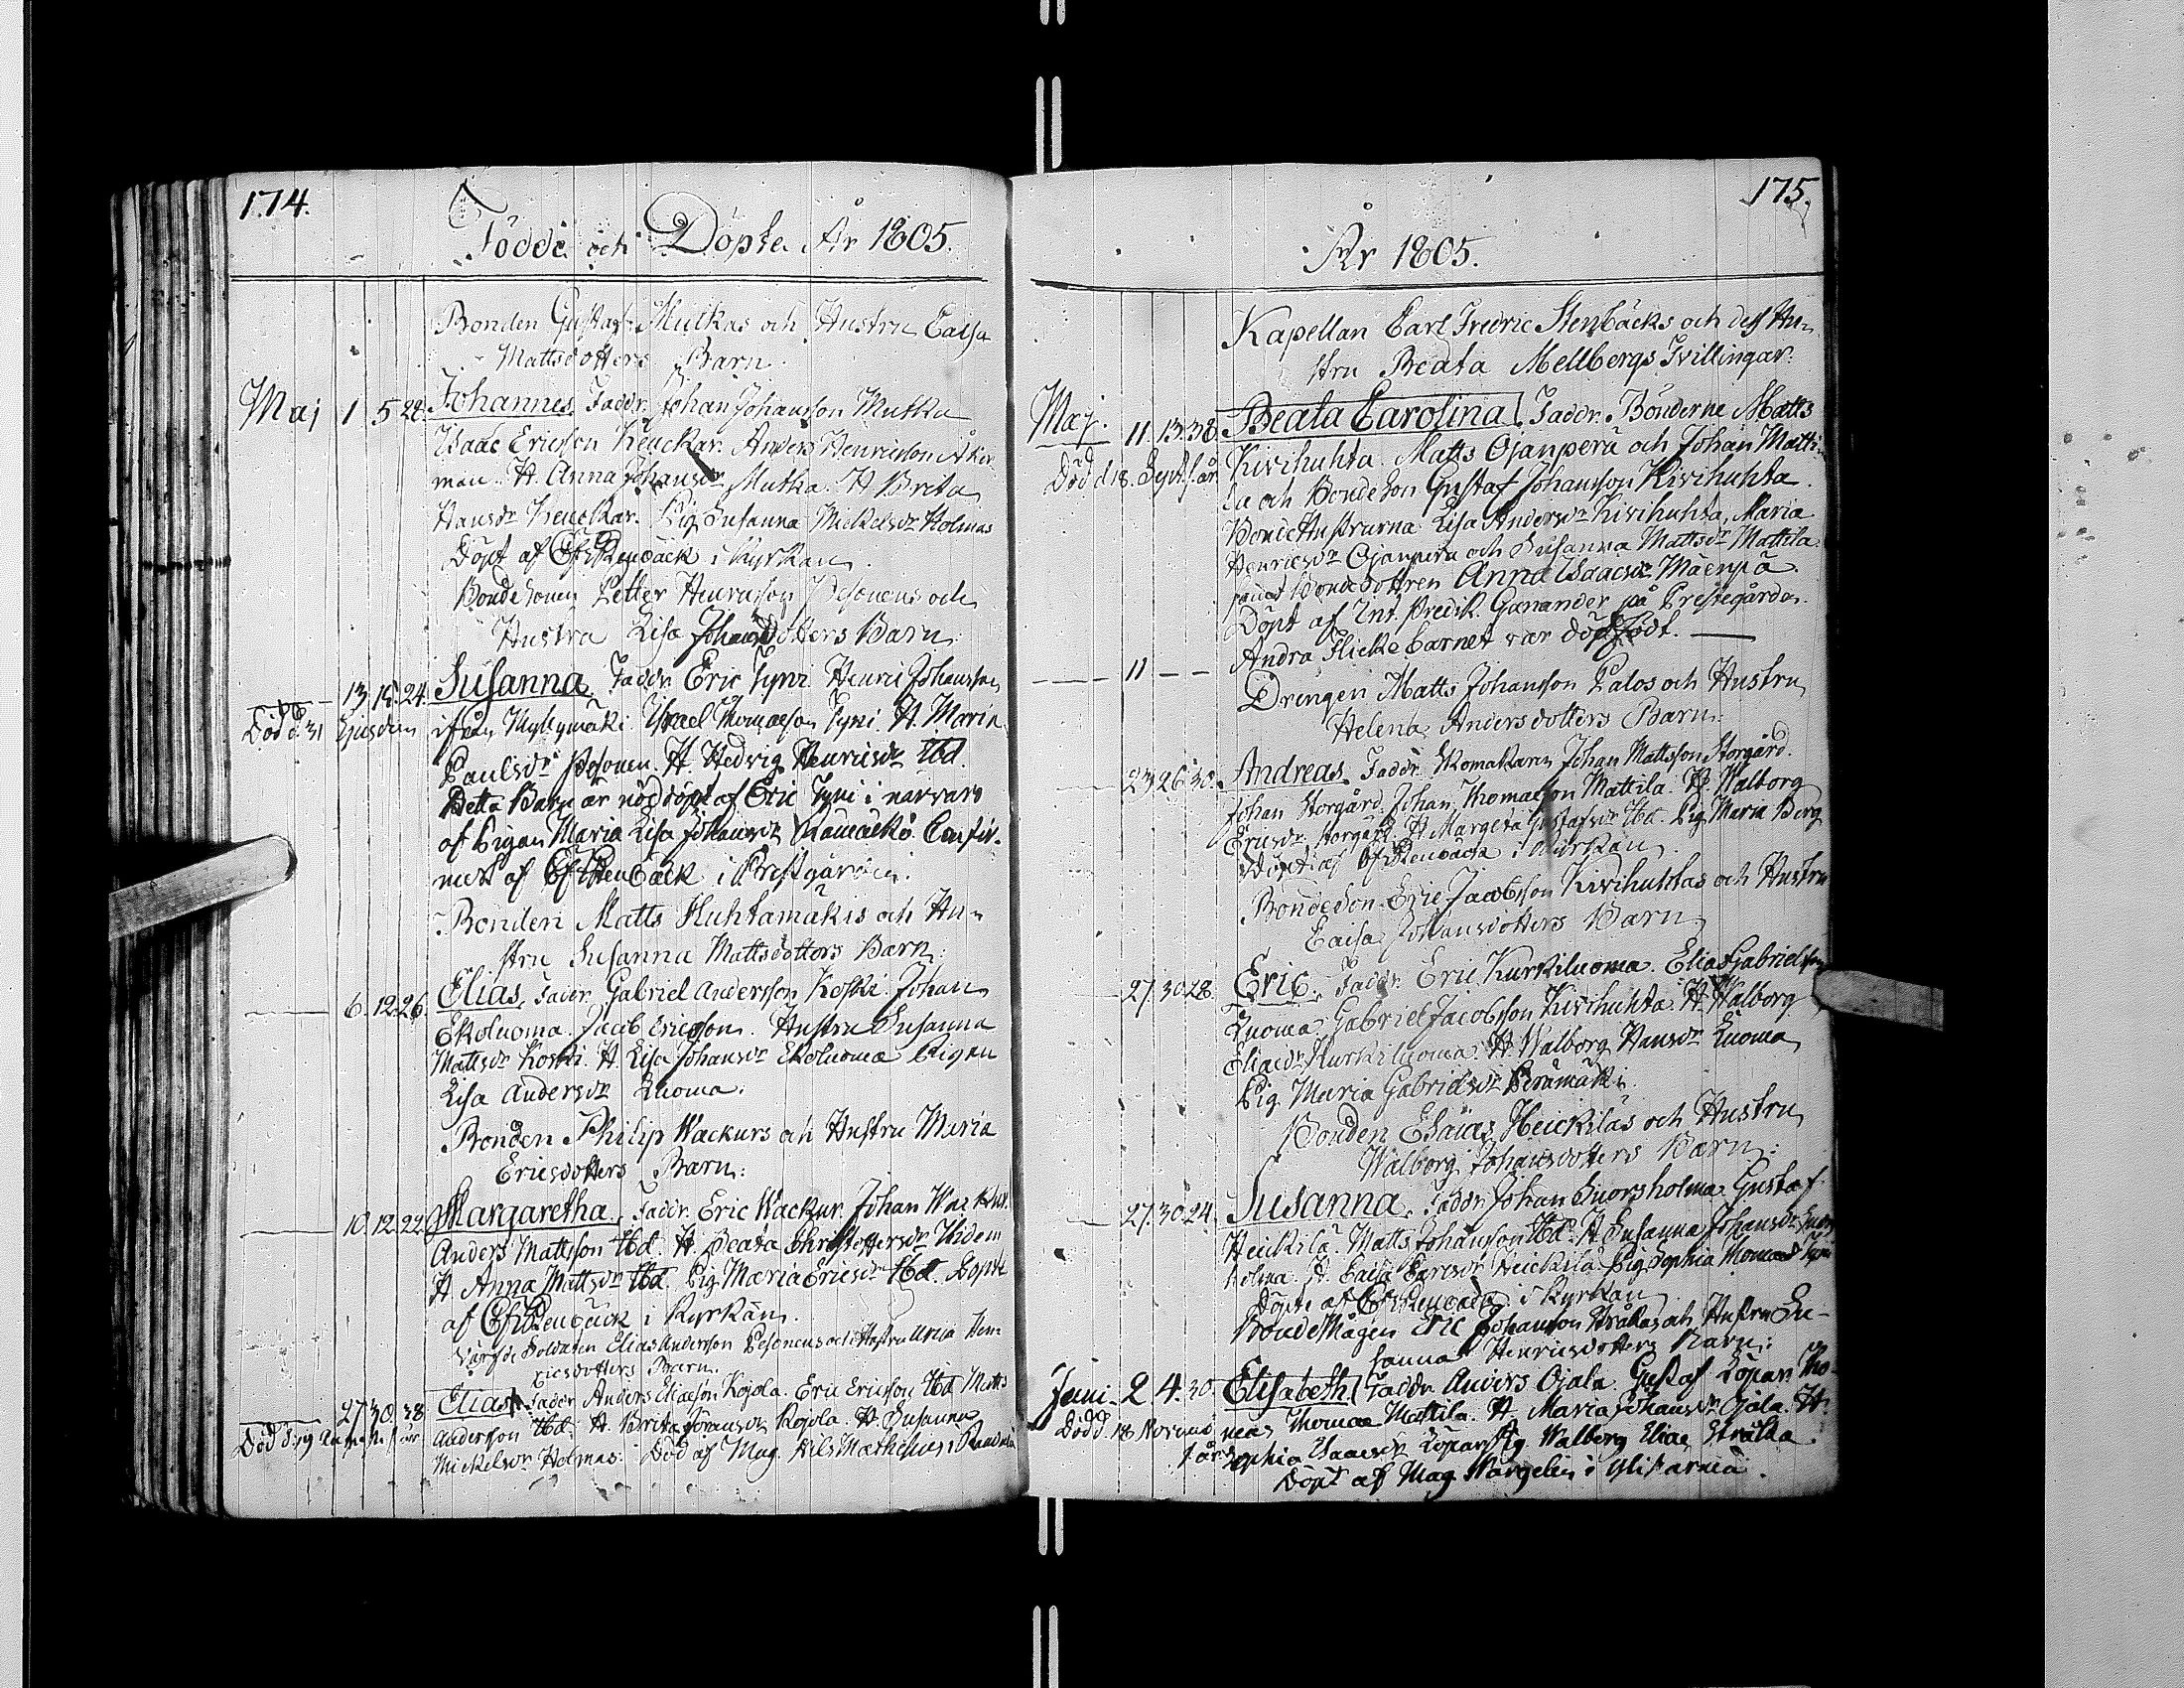 174.
Födde och Döpte År 1805.
Bonden Gustaf Mutkas och Hustru Caisa
Mattsdotters Barn.
Maj 1 5 28. Johannes. Faddr. Johan Johansson Mutka
Isaac Ericsson Keuckar. Anders Henricsson Åker-
man. H. Anna Johansdr Mutka. H Breta
Hansdr Keuckar. Pig. Susanna Mickelsdr Holmas
Döpt af CfrStenbäck i Kyrkan.
Bondesonen Petter Henricsson Pesonens och
Hustru Lisa Johansdotters Barn:
13. 16. 24. Susanna. Faddr. Eric Tyni. Henric Johansson
Död d. 31 Ejusdem ifrån Myllymäki. Israel Thomasson Tyni. H. Maria
Paulsdr Pesonen. H Hedvig Henricsdr Ibd.
Detta Barn är nöddöpt af Eric Tyni i närvaro
af Pigan Maria Lisa Johansdr. Confir-
mert af CfrStenbäck i Prestgården.
Bonden Matts Huhtamäkis och Hu-
stru Susanna Mattsdotters Barn:
6. 12. 26. Elias. Faddr. Gabriel Andersson Koski. Johan
Ekoluoma. Jacob Ericsson. Hustru Susanna
Mattsdr Koski. H. Lisa Johansdr Ekoluoma Pigan
Lisa Andersdr Luoma.
Bonden Philip Wackurs och Hustru Maria
Ericsdotters Barn:
10. 12. 22. Margaretha. Faddr. Eric Wackur. Johan Wackur.
Anders Mattsson Ibd. H. Beata Christoffersdr Ibidem
H Anna Mattsdr Ibd. Pig. Maria Ericsdr Ibd. Döpte
af CfrStenbäck i Kyrkan.
Soldaten Elias Andersson Pesonens och Hustru Hen-
ricsdotters Barn.
27. 30. 38 Elias. Faddr. Anders Eliasson Kojola. Eric Ericsson Ibd Matts
Död d. 19 Andersson Ibd. H. Breta Johansdr Kojola. H Susanna
Mickelsdr Holmas. Död af Mag. Nils Mathesius
175.
År 1805.
Kapellan Carl Fredric Stenbäcks och dess Hu-
stru Beata Mellbergs Tvillingar.
Maj. 11. 13. 38 Beata Carolina. Faddr. Bönderne Matts
Död d 18. Sept. s. år. Kivihuhta. Matts Ojanperä och Johan Matti-
la och BondeSon Gustaf Johansson Kivihuhta.
BondeHustrurna Lisa Andersdr Kivihuhta, Maria
Henricsdr Ojanperä och Susanna Mattsdr Mattila
samt Bondedottren Anna Isaacsdr Mäenpä.
Döpt af Int. Predik. Ganander på Prestegården.
11 — — Andra Flickebarnet var dödfödt. —
Drengen Matts Johansson Palos och Hustru
Helena Andersdotters Barn:
23 26 30. Andreas. Faddr. Skomakaren Johan Mattsson Storgård.
Johan Storgård. Johan Thomasson Mattila. H. Walborg
Ericsdr Storgård. H. Margeta Gustafsdr Ibd. Pig. Maria Berg
Döpt af CfrStenbäck i Kyrkan.
Bondeson Eric Jacobsson Kivihuhtas och Hustru
Caisa Johansdotters Barn:
27. 30. 28 Eric. Faddr. Eric Kurkiluoma. Elias Gabrielsson
Luoma. Gabriel Jacobsson Kivihuhta. H. Walborg
Eliædr Kurkiluoma. H. Walborg Hansdr Luoma
Pig. Maria Gabrielsdr Perämäki.
Bonden Esaias Heickiläs och Hustru
Walborg Johansdotters Barn:
27. 30. 24. Susanna. Faddr. Johan Luorsholma. Gustaf
Heickilä. Matts Johansson Ibd. H Susanna Johansdr Luors
holma. H. Caisa Carlsdr Heickilä. Pig. Sophia Thomasdr
Döpte af CfrStenbäck i Kyrkan
BondeMågen Eric Johansson Strålkas och Hustru Su-
sanna Henricsdotters Barn:
Juni. 2 4. 30. Elisabeth. Faddr. Anders Ojala. Gustaf Löpari Tho-
Död d. 18 Novemb. mas Thomae Mattila. H. Maria Johansdr Ojala. H.
s år. Sophia Isaacsdr Löpari Pig. Walborg Eliae Strålka.
Döpt af Mag. Wargelin i Ylistaro.